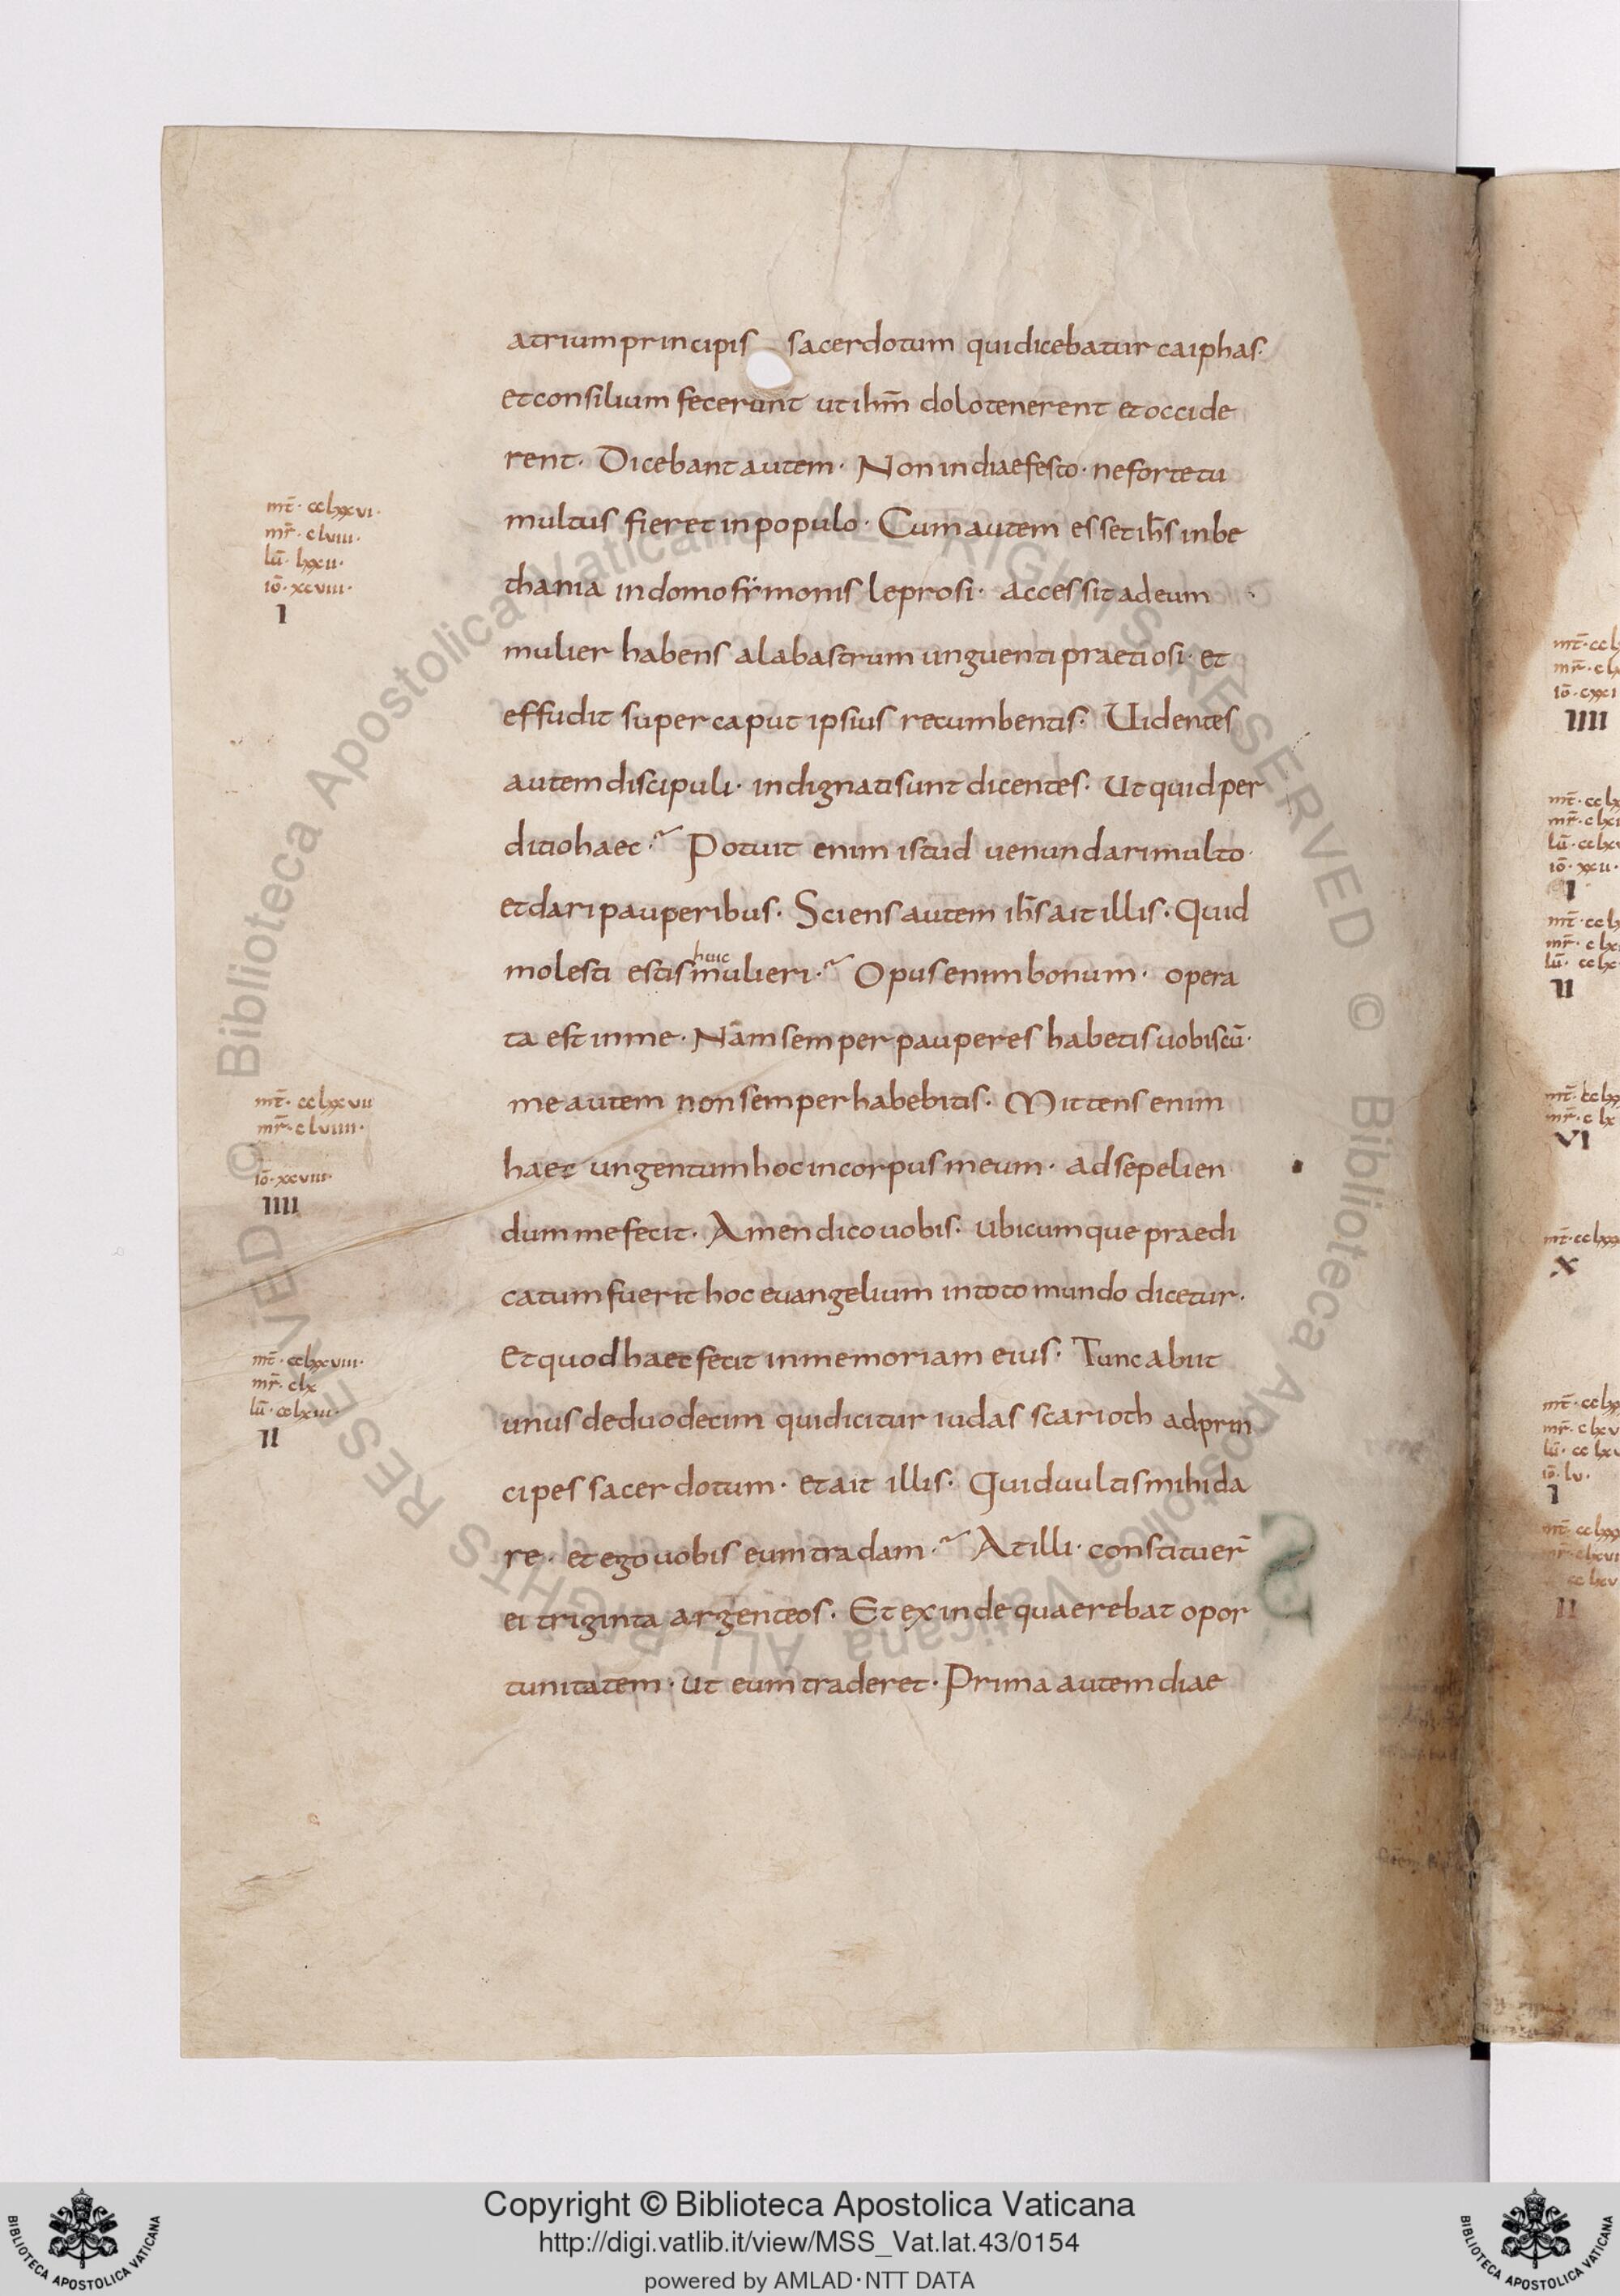 atrium principis sacerdotum qui dicebatur caiphas·
et consilium fecerunt ut ihm̄ dolo tenerent et occide
rent· Dicebant autem· Non in diae festo· ne forte tu
mt̄· cclxxvi·
mr̄· clviii·
lū· lxxii·
iō· xcviii·
I
multus fieret in populo· Cum autem esset ih̄s in be
thania in domo symonis leprosi· accessit ad eum
mulier habens alabastrum unguenti praetiosi· et
effudit super caput ipsius recumbentis· Uidentes
autem discipuli· indignati sunt dicentes· Ut quid per
ditio haec·~ Potuit enim istud uenundari multo·
et dari pauperibus· Sciens autem ih̄s ait illis· Quid
molesti estis huic mulieri·~ Opus enim bonum· opera
ta est in me· Nam semper pauperes habetis uobiscū·
mt̄· cclxxvii
mr̄· clviiii·
iō· xcviii·
IIII
me autem non semper habebitis· Mittens enim
haec ungentum hoc in corpus meum· ad sepelien
dum me fecit· Amen dico uobis· ubicumque praedi
catum fuerit hoc euangelium in toto mundo dicetur·
mt̄· cclxxviii·
mr̄· clx
lū· cclxiii·
II
Et quod haec fecit in memoriam eius· Tunc abiit
unus de duodecim qui dicitur iudas scarioth ad prin
cipes sacerdotum· et ait illis· Quid uultis mihi da
re· et ego uobis eum tradam·~ At illi· constituer̄
ei triginta argenteos· Et exinde quaerebat opor
tunitatem· ut eum traderet· Prima autem diae
IIII
I
II
VI
X
I
II
© Biblioteca Apostolica Vaticana ALL RIGHTS RESERVED
© Biblioteca Apostolica Vaticana ALL RIGHTS RESERVED
BIBLIOTECA APOSTOLICA VATICANA
Copyright © Biblioteca Apostolica Vaticana
http://digi.vatlib.it/view/MSS_Vat.lat.43/0154
powered by AMLAD·NTT DATA
BIBLIOTECA APOSTOLICA VATICANA